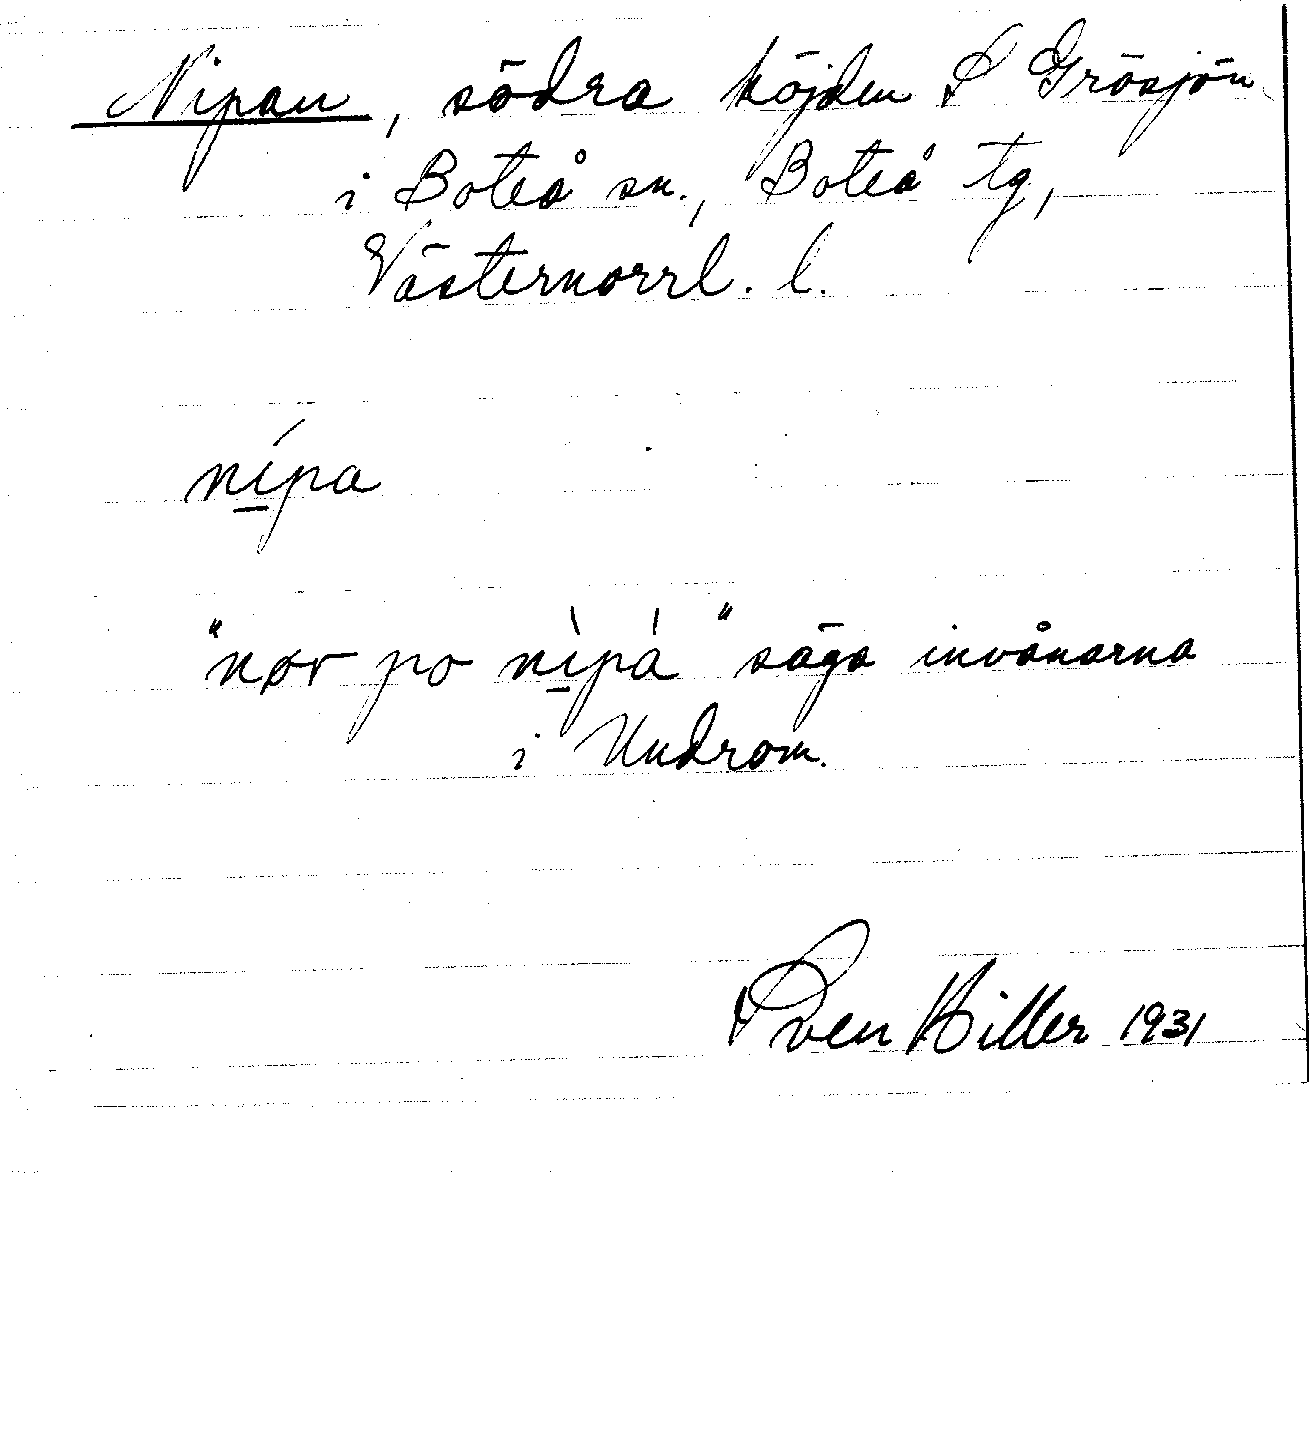 Nipan, södra höjden S Gråsjön
i Boteå sn., Boteå tg,
Västernorrl. l.
nípa
"nør po nìpá" säga invånarna
i Undrom.
Sven Hiller 1931